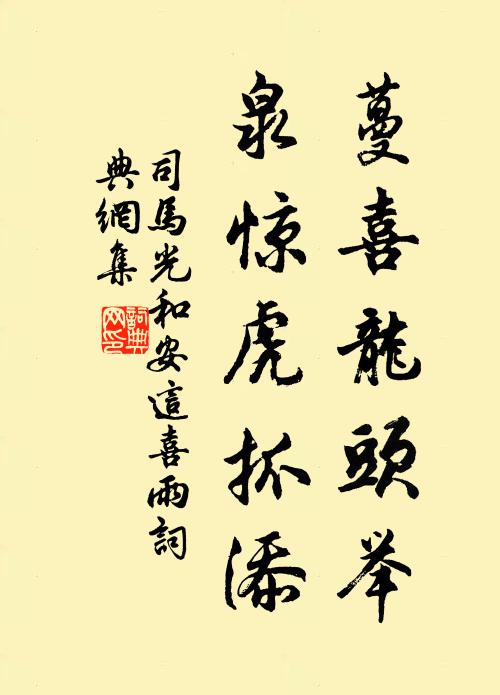 蔓喜龍頭举
泉惊虎抓添
司馬光和安這喜雨詞
典網集
詞典
网印